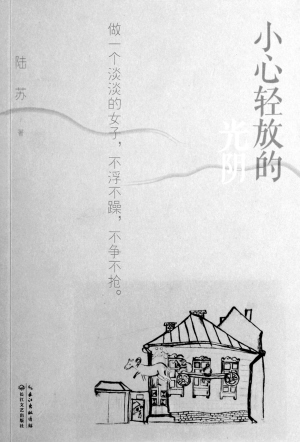 小心轻放的
光阴
做一个淡淡的女子，不浮不躁，不争不抢。
陆苏 著
长江出版传媒
长江文艺出版社